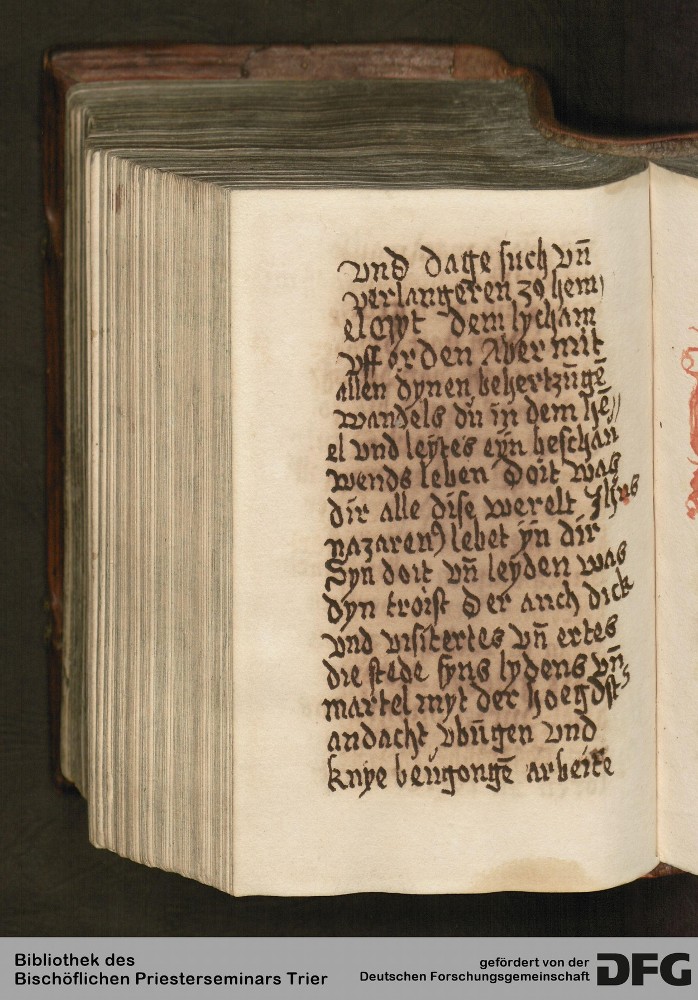 vnd dage such vn̄
verlangeren zo hem
el myt dem lycham
vff erden Aber mit
allen dynen behertzūgē
wandels du in dem hē
el vnd leytes eyn beschau
wends leben Doit was
dir alle dise werelt Jhus
nazaren⁹ lebet yn dir
Syn doit vn̄ leyden was
dyn troist Der auch dick
vnd visitertes vn̄ ertes
die stede syns lydens vn̄
martel myt der hoegdst
andacht vbūgen vnd
knye beugongē arbeite
Bibliothek des
Bischöflichen Priesterseminars Trier
gefördert von der
Deutschen Forschungsgemeinschaft DFG